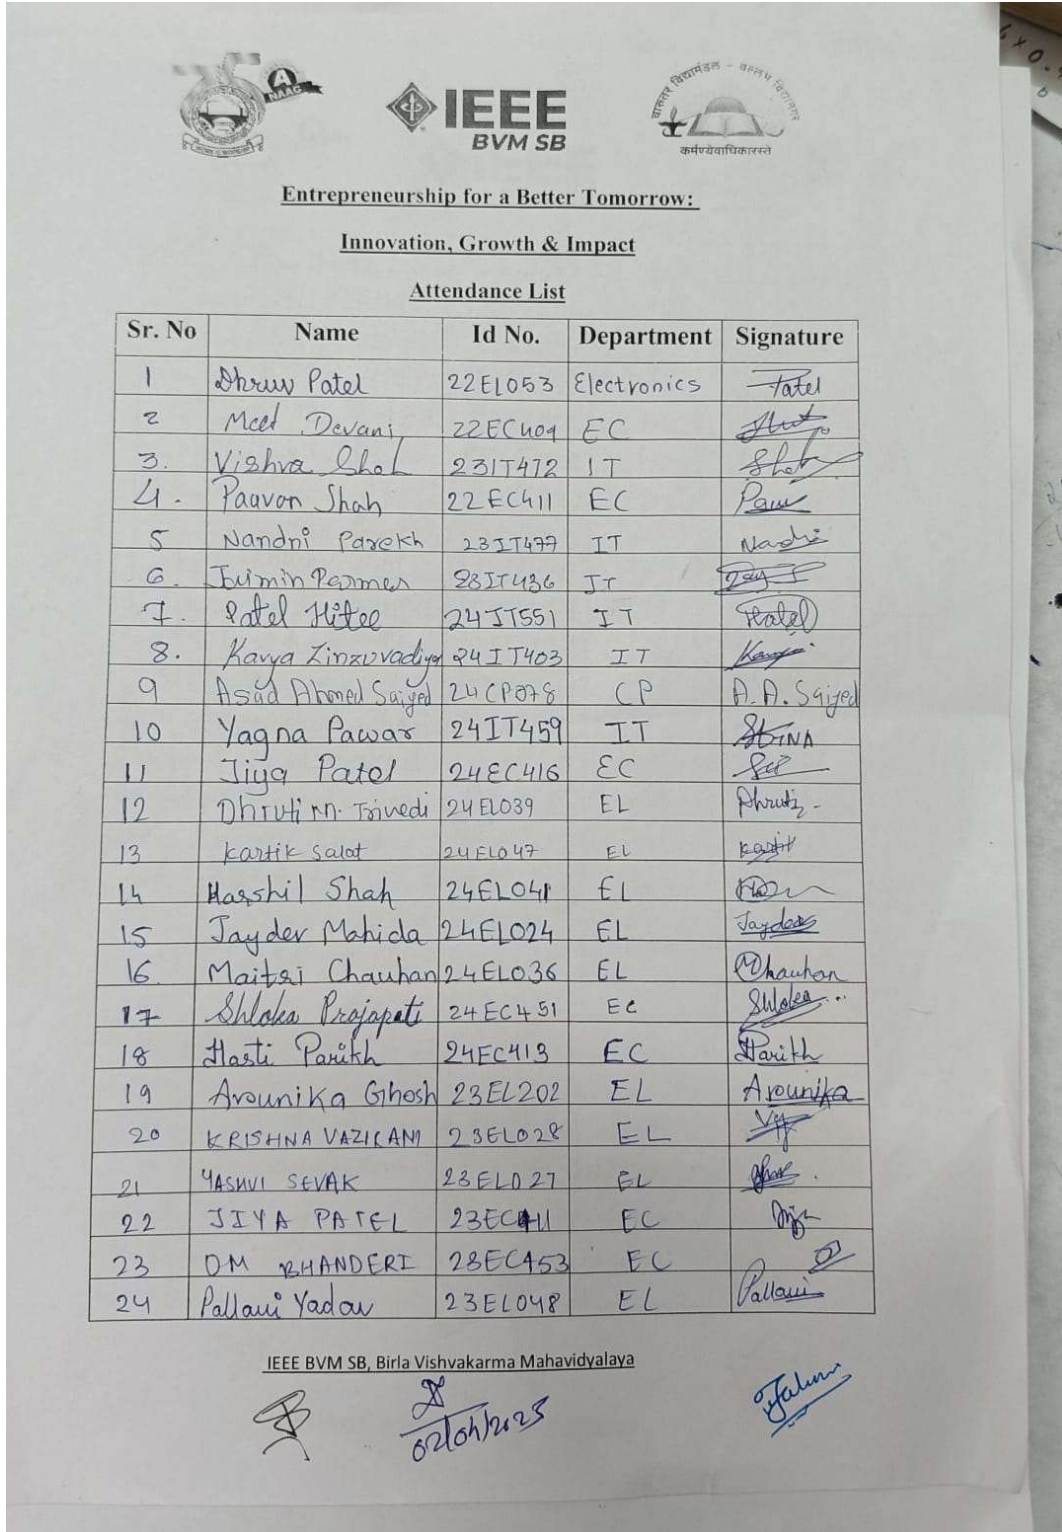 NAAC
A
IEEE
BVM SB
चारुतर विद्यामंडल - वल्लभ विद्यानगर
कर्मण्येवाधिकारस्ते
Entrepreneurship for a Better Tomorrow:
Innovation, Growth & Impact
Attendance List
Sr. No Name Id No. Department Signature
1 Dhruv Patel 22EL053 Electronics Patel
2 Meet Devani 22EC409 EC
3. Vishva Shah 23IT472 IT Shah
4. Paavan Shah 22EC411 EC
5 Nandni Parekh 23IT477 IT
6. Parmer 23IT436 IT
7. Patel Hitee 24IT551 IT Hatel
8. Kavya Zinzuvadiya 24IT403 IT
9 Asad Ahmed Saiyed 24CP078 CP A.A. Saiyed
10 Yagna Pawar 24IT459 IT
11 Jiya Patel 24EC416 EC
12 Dhruti M. Trivedi 24EL039 EL Dhruti
13 Kartik Salat 24EL047 EL Kartik
14 Harshil Shah 24EL041 EL
15 Jaydev Mahida 24EL024 EL Jaydev
16. Maitri Chauhan 24EL036 EL MChauhan
17 Shloka Prajapati 24EC451 EC Shloka
18 Hasti Parikh 24EC413 EC HParikh
19 Arounika Ghosh 23EL202 EL Arounika
20 KRISHNA VAZIRANI 23EL028 EL
21 YASHVI SEVAK 23EL027 EL
22 JIYA PATEL 23EC411 EC
23 OM BHANDERI 23EC453 EC
24 Pallavi Yadav 23EL048 EL Pallavi
IEEE BVM SB, Birla Vishvakarma Mahavidyalaya
02/04/2025